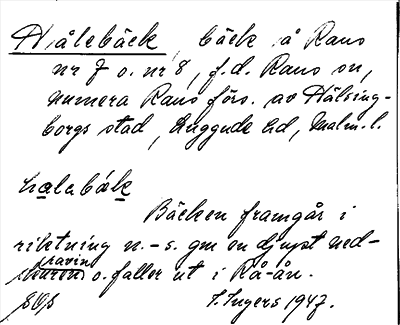 Hålebäck, bäck å Raus
nr 7 o. nr 8, f.d. Raus sn,
numera Raus förs. av Hälsing-
borgs stad, Luggude hd, Malm. l.
halabäk
Bäcken framgår i
riktning n.-s. gm en djupt ned-
skuren ravin o. faller ut i Rå-ån.
I. Ingers 1947.